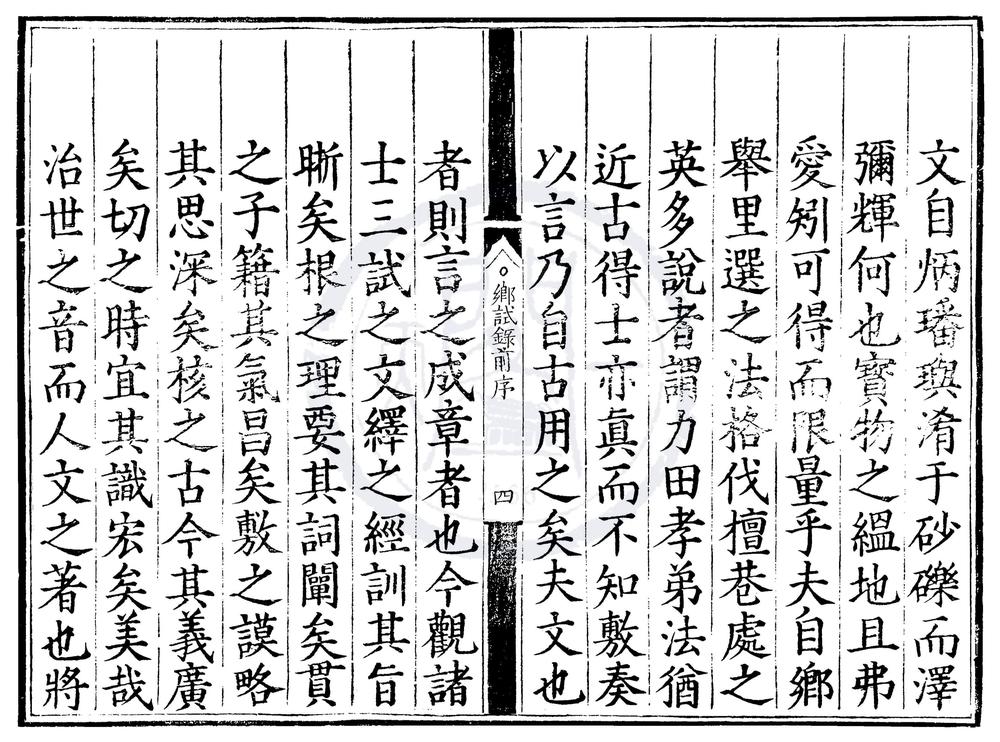 文自炳璠璵淆于砂礫而澤
彌輝何也寶物之縕地且弗
愛矧可得而限量乎夫自鄉
舉里選之法格伐檀巷處之
英多說者謂力田孝弟法猶
近古得士亦眞而不知敷奏
以言乃自古用之矣夫文也
鄉試錄前序
四
者則言之成章者也今觀諸
士三試之文繹之經訓其旨
晣矣根之理要其詞闡矣貫
之子籍其氣昌矣敷之謨略
其思深矣核之古今其義廣
矣切之時宜其識宏矣美哉
治世之音而人文之著也將